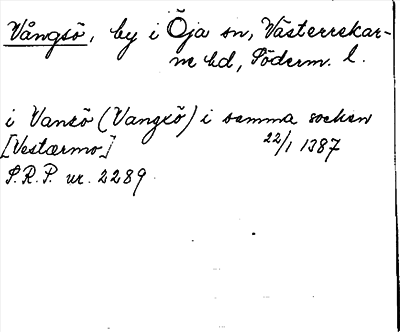 Vångsö, by i Öja sn, Västerrekar-
ne hd, Söderm. l.
i Vansö (Vangsö) i samma socken
[Vestærmo] 22/1 1387
S.R.P. nr. 2289.